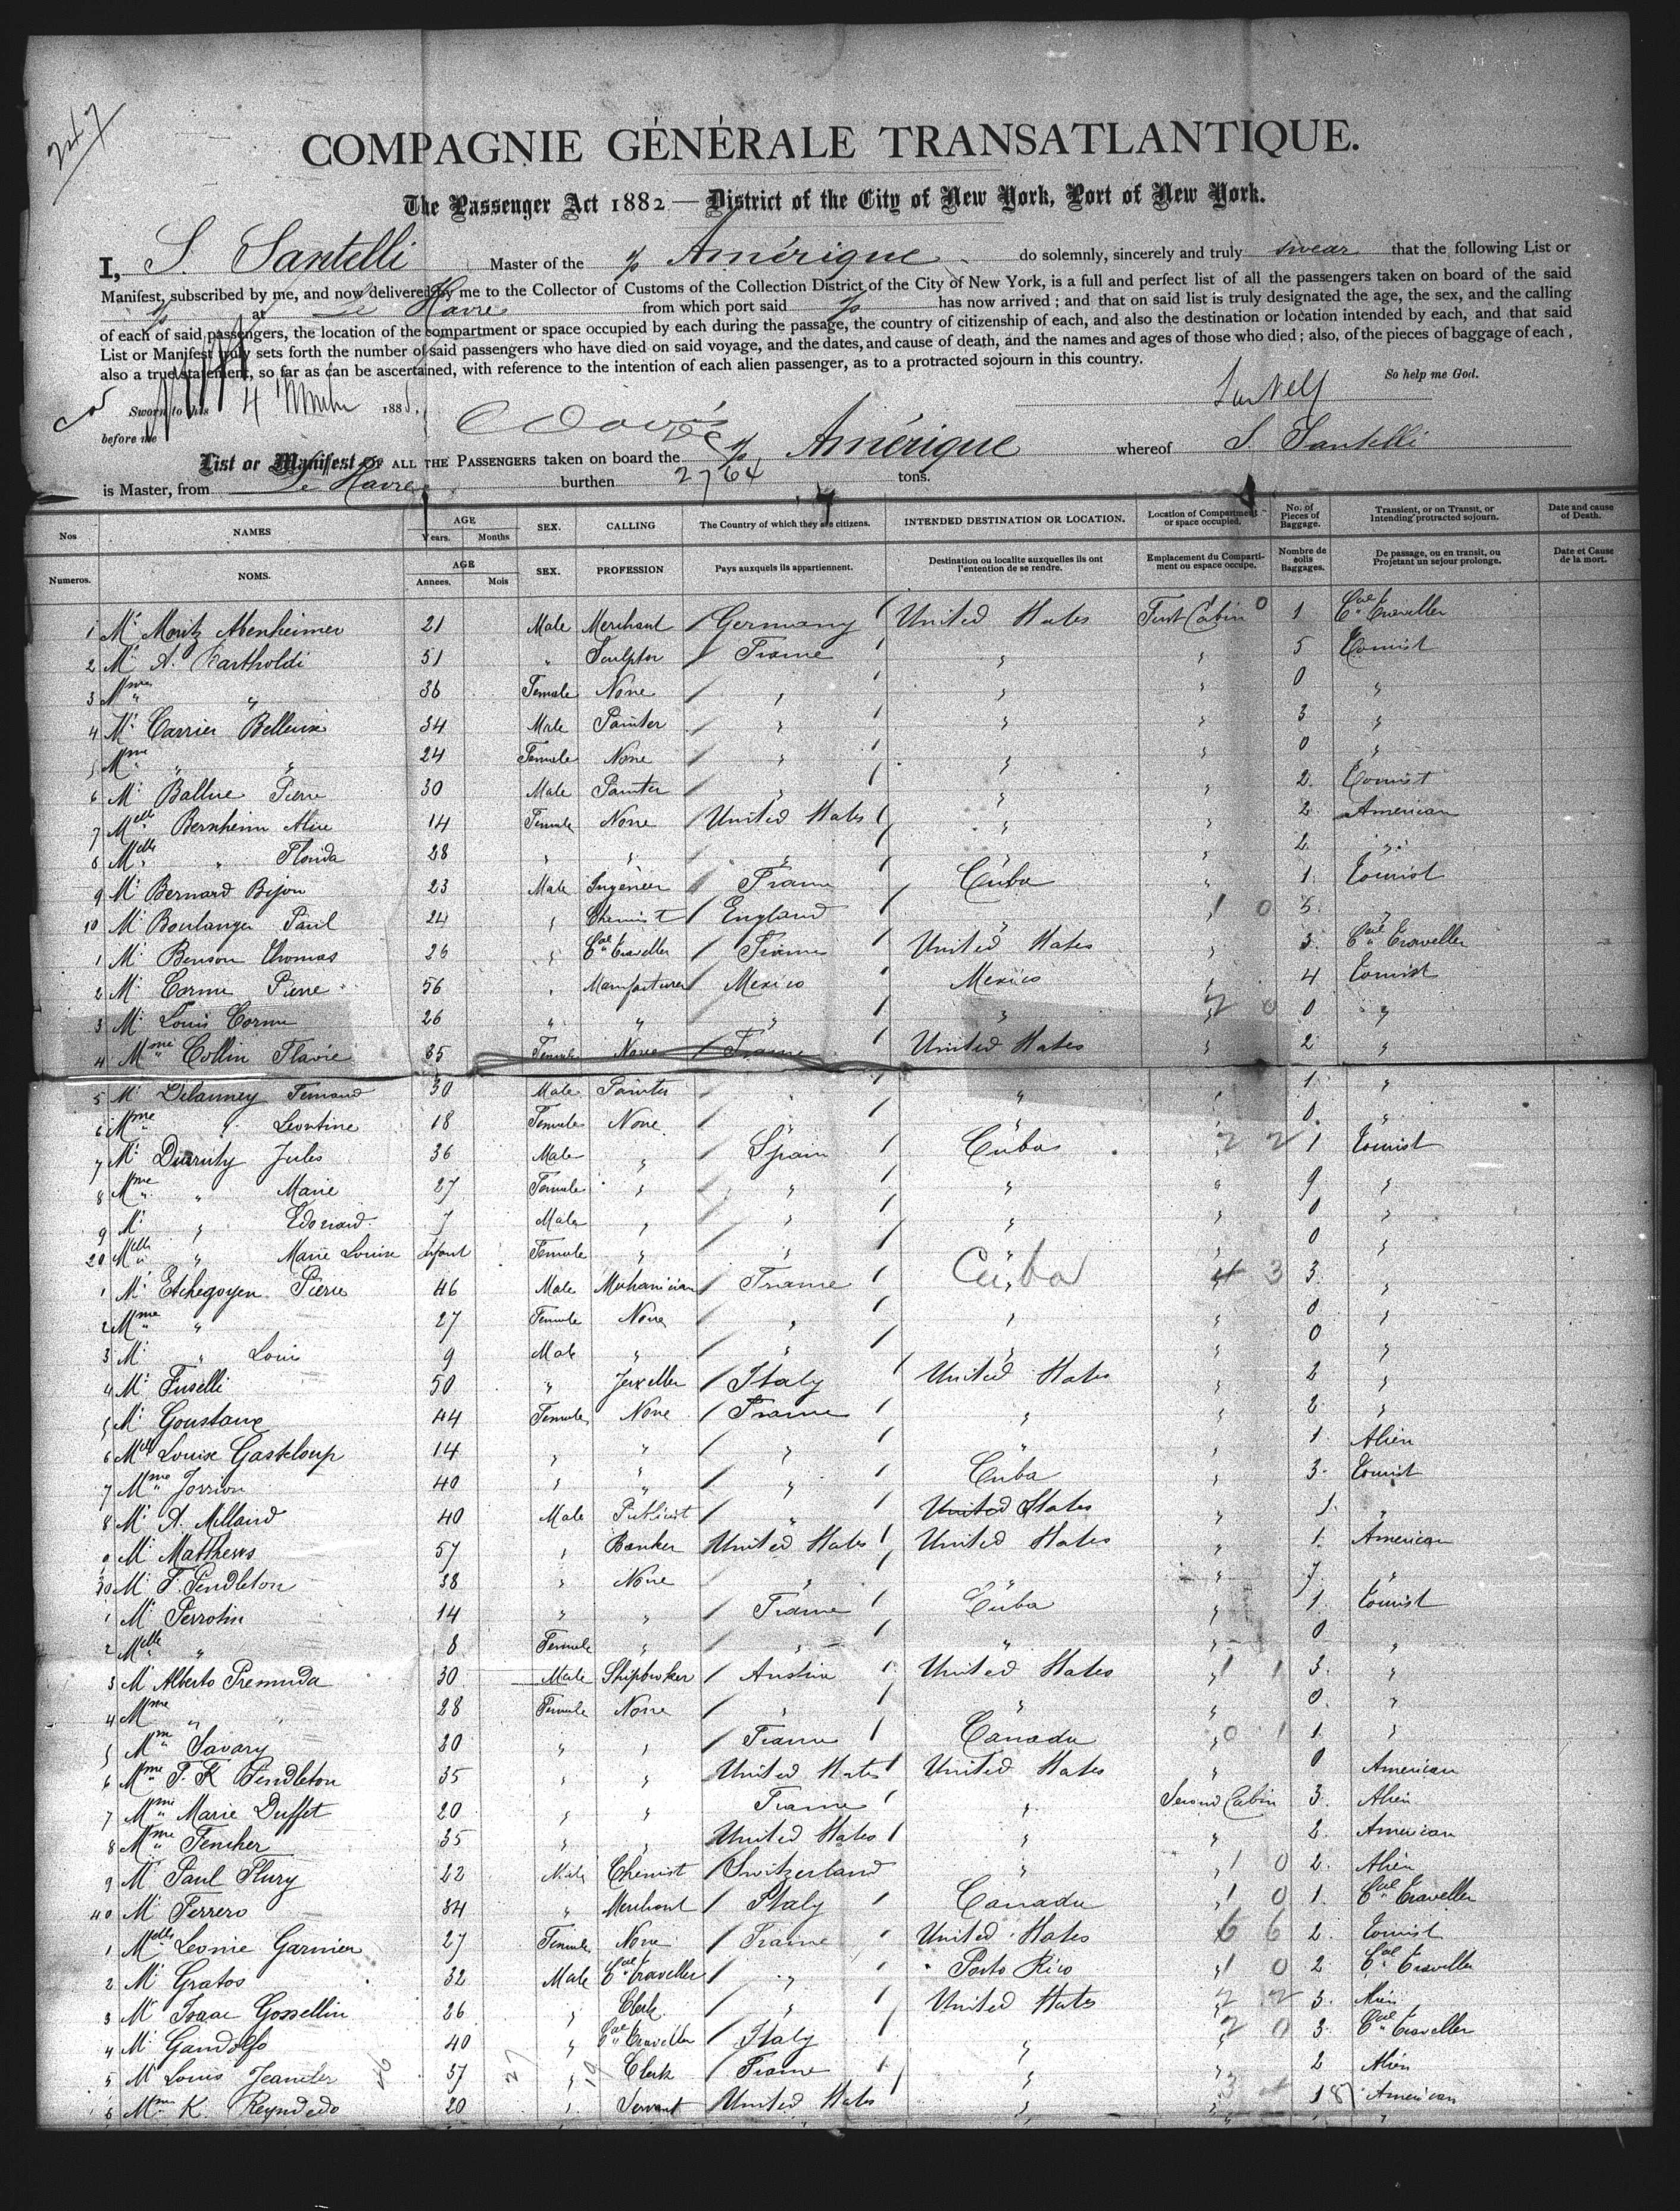 247
COMPAGNIE GÉNÉRALE TRANSATLANTIQUE.
The Passenger Act 1882 — District of the City of New York, Port of New York.
I, S. Santelli Master of the s/s Amérique do solemnly, sincerely and truly swear that the following List or
Manifest, subscribed by me, and now delivered by me to the Collector of Customs of the Collection District of the City of New York, is a full and perfect list of all the passengers taken on board of the said
s/s at Le Havre from which port said s/s has now arrived; and that on said list is truly designated the age, the sex, and the calling
of each of said passengers, the location of the compartment or space occupied by each during the passage, the country of citizenship of each, and also the destination or location intended by each, and that said
List or Manifest truly sets forth the number of said passengers who have died on said voyage, and the dates, and cause of death, and the names and ages of those who died; also, of the pieces of baggage of each,
also a true statement, so far as can be ascertained, with reference to the intention of each alien passenger, as to a protracted sojourn in this country.
So help me God.
Sworn to this 4 188 Santelli
before me
List or Manifest OF ALL THE PASSENGERS taken on board the s/s Amérique whereof S. Santelli
is Master, from Le Havre burthen 2764 tons.
Nos NAMES AGE Years. Months SEX. CALLING The Country of which they are citizens. INTENDED DESTINATION OR LOCATION. Location of Compartment or space occupied. No. of Pieces of Baggage. Transient, or on Transit, or Intending protracted sojourn. Date and cause of Death.
Numeros. NOMS. AGE Annees. Mois SEX. PROFESSION Pays auxquels ils appartiennent. Destination ou localite auxquelles ils ont l'entention de se rendre. Emplacement du Compartiment ou espace occupe. Nombre de colis Baggages. De passage, ou en transit, ou Projetant un sejour prolonge. Date et Cause de la mort.
1 Mr Moritz Abenheimer 21 Male Merchant Germany United States First Cabin 0 1 Cal Traveller
2 Mr A. Bartholdi 51 " Sculptor France " " 5 Tourist
3 Mme " 36 Female None " " " 0 "
4 Mr Carrier Belleuse 34 Male Painter " " " 3 "
5 Mme " " 24 Female None " " " 0 "
6 Mr Ballue Pierre 30 Male Painter " " " 2 Tourist
7 Melle Bernheim Alice 14 Female None United States " " 2 American
8 Melle " Florida 28 " " " " " 2 "
9 Mr Bernard Bijou 23 Male Ingénieer France Cuba " 1 Tourist
10 Mr Boulanger Paul 24 " Chemist England " 1 0 5 "
1 Mr Benson Thomas 26 " Cal Traveller France United States " 3 Cal Traveller
2 Mr Cornu Pierre 56 " Manufacturer Mexico Mexico " 4 Tourist
3 Mr Louis Cornu 26 " " " " 2 0 0 "
4 Mme Collin Flavie 35 Female None France United States " 2 "
5 Mr Delanney Fernand 30 Male Painter " " " 1 "
6 Mme " Leontine 18 Female None " " " 0 "
7 Mr Durruty Jules 36 Male " Spain Cuba 2 2 1 Tourist
8 Mme " Marie 27 Female " " " " 9 "
9 Mr " Edouard 7 Male " " " " 0 "
20 Melle " Marie Louise Infant Female " " " " 0 "
1 Mr Etchegoyen Pierre 46 Male Mechanician France Cuba 4 3 3 "
2 Mme " 27 Female None " " " 0 "
3 Mr " Louis 9 Male " " " " 0 "
4 Mr Fuselli 50 " Jeweller Italy United States " 2 "
5 Mr Goustaux 44 Female None France " " 2 "
6 Mell Louise Gasteloup 14 " " " " " 1 Alien
7 Mme Jorrion 40 " " " Cuba " 3 Tourist
8 Mr A. Millaud 40 Male Publicist " United States " 1 "
9 Mr Matthews 57 " Banker United States United States " 1 American
30 Mr F. Pendleton 38 " None " " " 7 "
1 Mr Perrotin 14 " " France Cuba " 1 Tourist
2 Melle " 8 Female " " " " 0 "
3 Mr Alberto Premuda 30 Male Shipbroker Austria United States 1 1 3 "
4 Mme " " 28 Female None " " " 0 "
5 Mme Savary 20 " " France Canada 0 1 1 "
6 Mme F. K Pendleton 35 " " United States United States " 0 American
7 Mme Marie Duffet 20 " " France " Second Cabin 3 Alien
8 Mme Fencher 35 " " United States " " 2 American
9 Mr Paul Flury 22 Male Chemist Switzerland " 1 0 2 Alien
40 Mr Ferrero 34 " Merchant Italy Canada 1 0 1 Cal Traveller
1 Melle Leonie Garnier 27 Female None France United States 6 6 2 Tourist
2 Mr Gratos 32 Male Cal Traveller " Porto Rico 1 0 2 Cal Traveller
3 Mr Isaac Gossellin 26 " Clerk " United States 2 2 3 Alien
4 Mr Gandolfo 40 " Cal Traveller Italy " 2 0 3 Cal Traveller
5 Mr Louis Jeancler 37 " Clerk France " " 2 Alien
6 Mme K. Reyndedo 20 " Servant United States " " 1 American
46 27 19 87